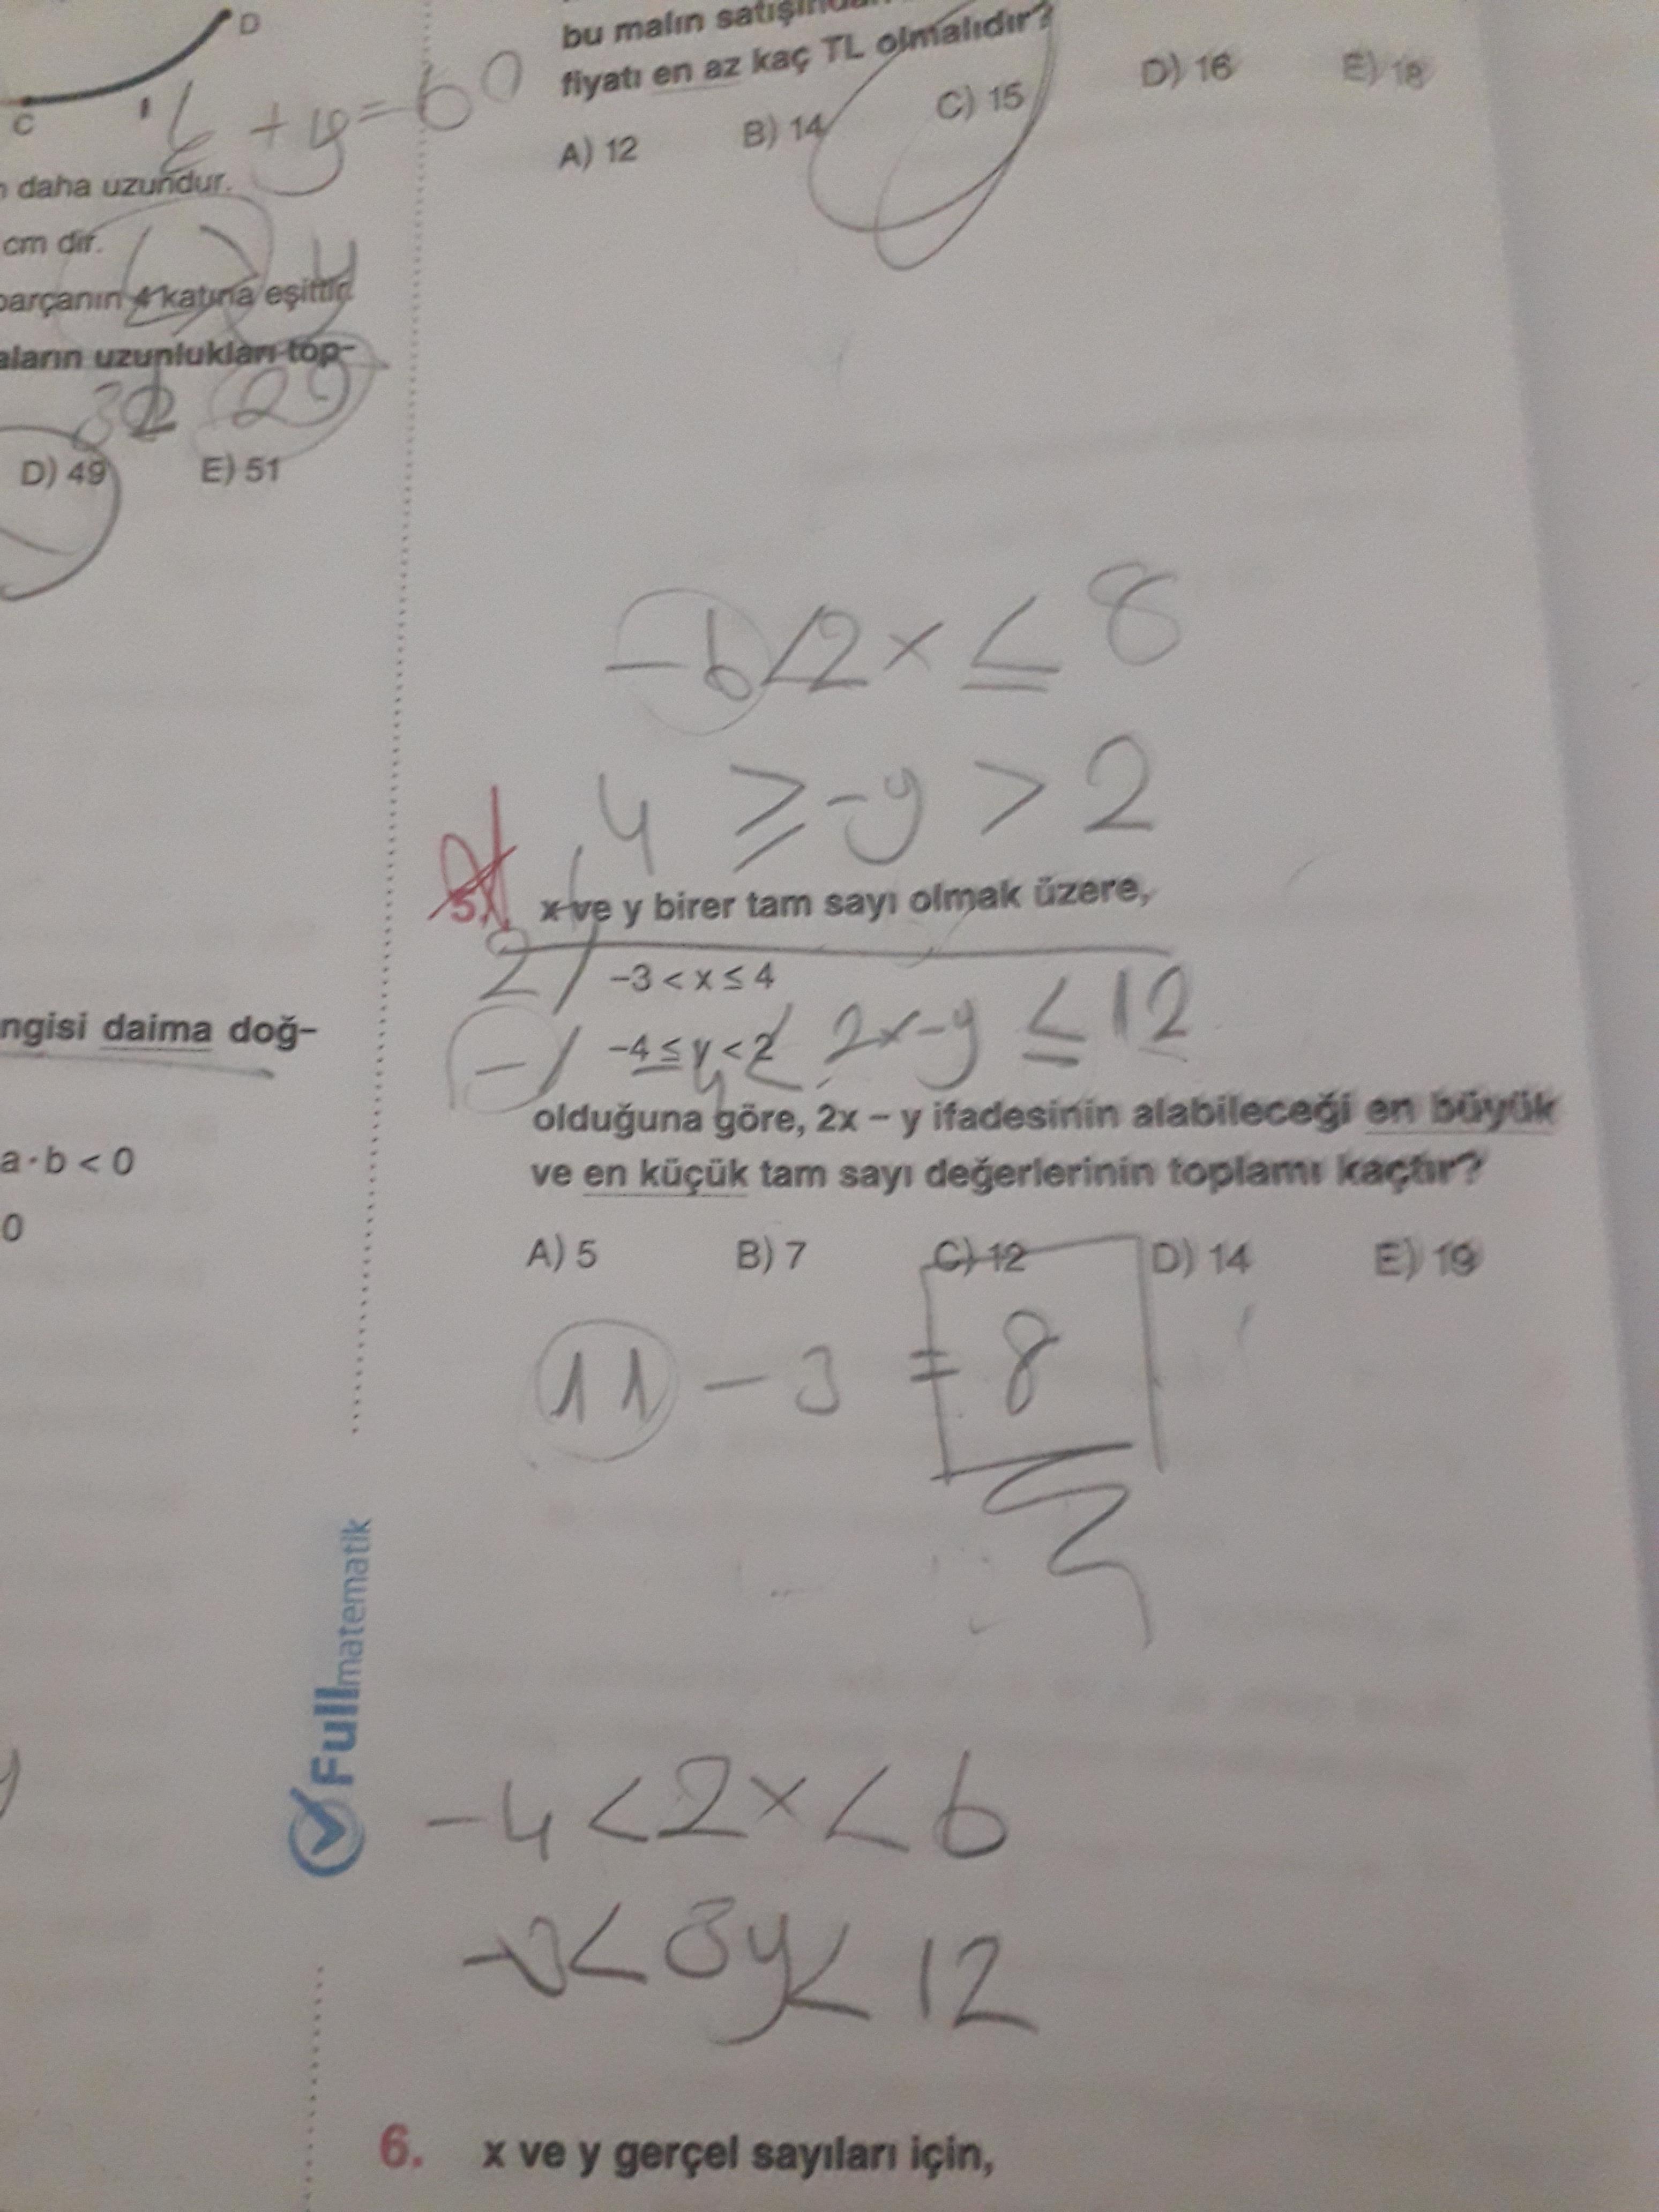 D
C
6 + y = 60
daha uzundur.
cm dir.
parçanın 4 katına eşittir.
aların uzunlukları top-
32 29
D) 49 E) 51
ngisi daima doğ-
a·b < 0
0
Fullmatematik
bu malın
fiyatı en az kaç TL olmalıdır?
A) 12 B) 14 C) 15 D) 16 E) 18
-6<2x ≤ 8
4 ≥ -y > 2
5. x ve y birer tam sayı olmak üzere,
-3 < x ≤ 4
-4 ≤ y < 2
< 2x-y ≤ 12
olduğuna göre, 2x – y ifadesinin alabileceği en büyük
ve en küçük tam sayı değerlerinin toplamı kaçtır?
A) 5 B) 7 C) 12 D) 14 E) 19
11 - 3 = 8
-4 < 2x < 6
< 3y < 12
6. x ve y gerçel sayıları için,